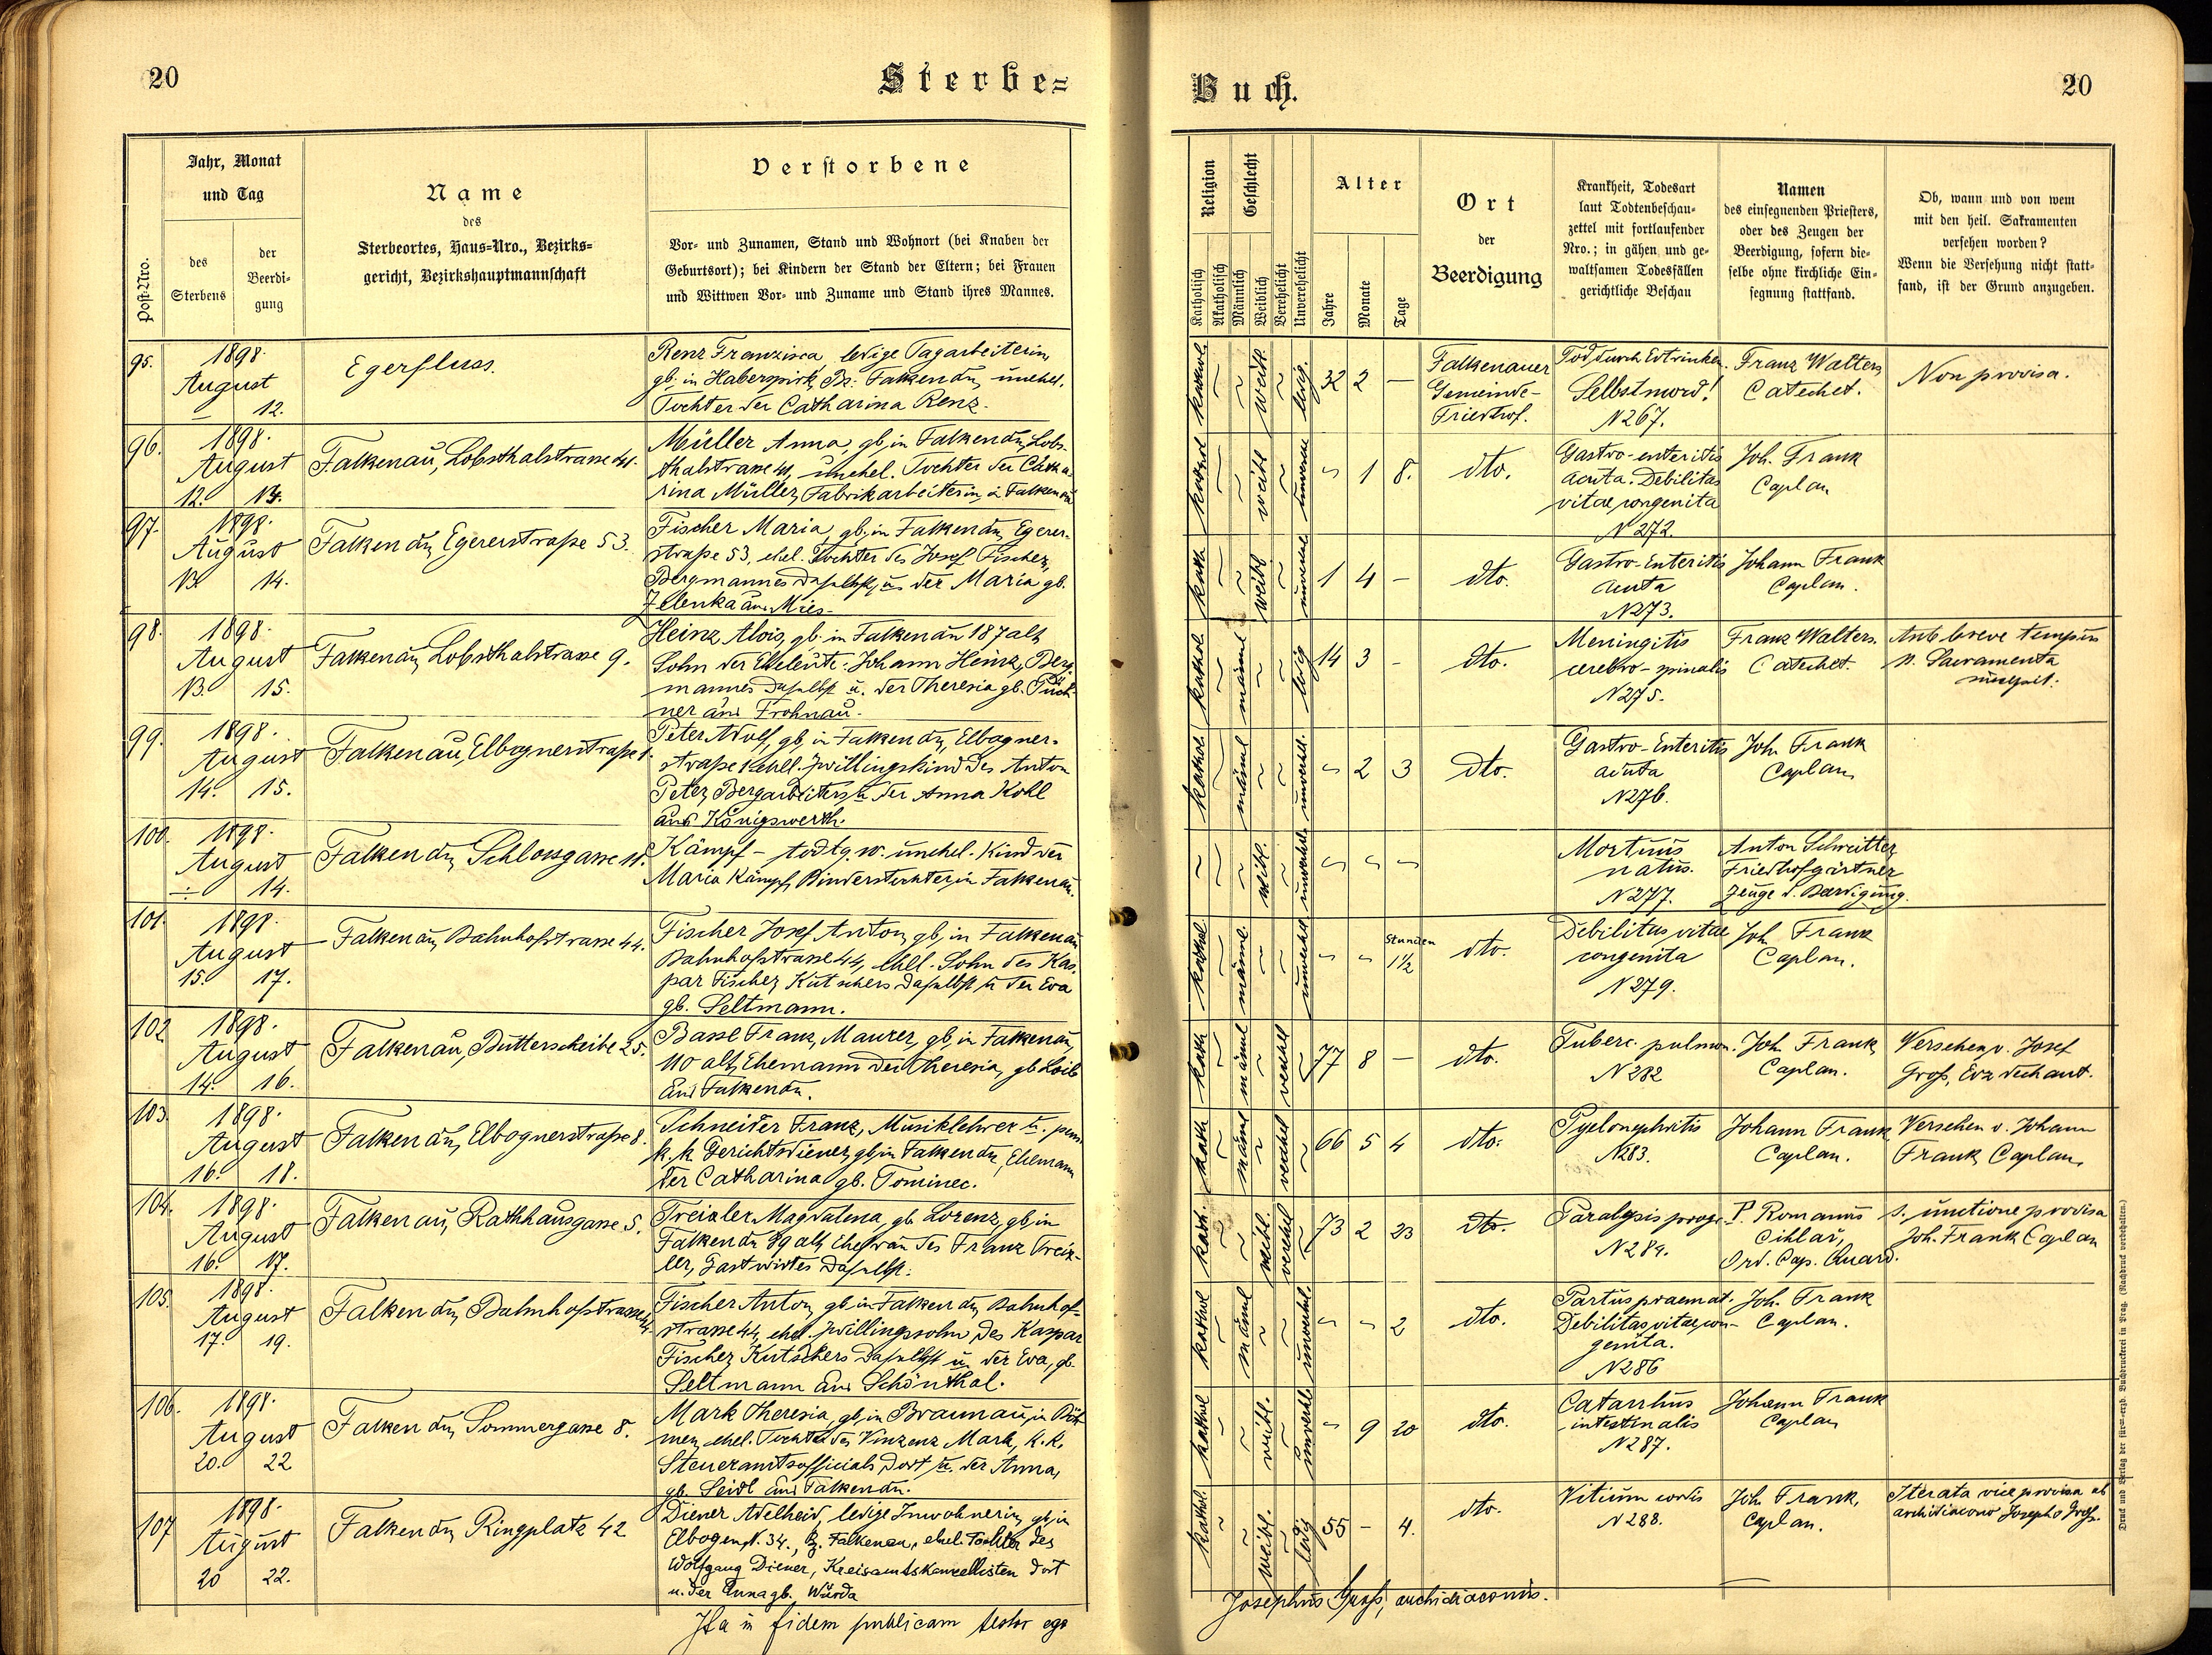 20
Sterbe=
Jahr, Monat
und Tag
Post-Nro.
des
Sterbens
der
Beerdi-
gung
Name
des
Sterbeortes, Haus-Nro., Bezirks-
gericht, Bezirkshauptmannschaft
Verstorbene
Vor- und Zunamen, Stand und Wohnort (bei Knaben der
Geburtsort); bei Kindern der Stand der Eltern; bei Frauen
und Wittwen Vor- und Zuname und Stand ihres Mannes.
95.
1898.
August
12.
Egerfluss.
Renz Franzisca, ledige Tagarbeiterin,
gb. in Haberspirk, Bz. Falkenau, unehel.
Tochter der Catharina Renz.
96.
1898.
August
12. 13.
Falkenau, Lobsthalstrasse 41.
Müller Anna, gb, in Falkenau, Lobs-
thalstrasse 41, unehel. Tochter der Catha
rina Müller, Fabrikarbeiterin in Falkenau
97.
1898.
August
13. 14.
Falkenau, Egererstraße 53.
Fischer Maria, gb. in Falkenau, Egerer-
straße 53, ehel. Tochter des Josef Fischer,
Bergmannes daselbst, u. der Maria gb.
Zelenka aus Mies-
98.
1898.
August
13. 15.
Falkenau, Lobsthalstrasse 9.
Heinz Alois, gb. in Falkenau 187 alt,
Sohn der Eheleute: Johann Heinz, Berg
mannes daselbst u. der Theresia gb. Püch-
ner aus Frohnau.
99.
1898.
August
14. 15.
Falkenau, Elbognerstraße 1.
Peter Adolf, gb, in Falkenau, Elbogner-
straße 1, ehel. Zwillingskind des Anton
Peter, Bergarbeiters, u. der Anna Kohl
aus Königswerth.
100.
1898.
August
÷ 14.
Falkenau, Schlossgasse 11.
Kämpf – todtg. w. unehel. Kind der
Maria Kämpf, Binderstochter, in Falkenau.
101.
1898.
August
15. 17.
Falkenau, Bahnhofstrasse 44.
Fischer Josef Anton, gb, in Falkenau
Bahnhofstrasse 44, ehel. Sohn des Kas-
par Fischer, Kutschers daselbst u. der Eva
gb. Seltmann.
102
1898.
August
14. 16.
Falkenau, Dutterscheibe 25.
Bassl Franz, Maurer, gb, in Falkenau,
110 alt, Ehemann der Theresia, gb Loib
aus Falkenau.
103.
1898.
August
16. 18.
Falkenau, Elbognerstraße 8.
Schneider Franz, Musiklehrer u. pens.
k. k. Gerichtsdiener, gb, in Falkenau, Ehemann
der Catharina gb. Tominec.
104.
1898.
August
16. 17.
Falkenau, Rathhausgasse 5.
Treixler Magdalena, gb. Lorenz, gb, in
Falkenau 89 alt, Ehefrau des Franz Treix-
ler, Gastwirtes daselbst.
105.
1898.
August
17. 19.
Falkenau, Bahnhofstrasse 44.
Fischer Anton, gb. in Falkenau, Bahnhof-
strasse 44, ehel. Zwillingssohn des Kaspar
Fischer, Kutschers daselbst u. der Eva, gb.
Seltmann aus Schönthal.
106.
1898.
August
20. 22
Falkenau, Sommergasse 8.
Mark Theresia, gb, in Braunau, in Böh
men, ehel. Tochter des Vinzenz Mark, k. k.
Steueramtsofficials dort u. der Anna,
gb. Seidl aus Falkenau.
107
1898.
August
20 22.
Falkenau, Ringplatz 42
Diener Adelheid, ledige Inwohnerin, gb, in
Elbogen, N. 34., Bz. Falkenau, ehel. Tochter des
Wolfgang Diener, Kreisamtskancellisten dort
u. der Anna gb. Warda
Ita in fidem publicam testor ego
Buch.
20
Religion
Katholisch
Akatholisch
Geschlecht
Männlich
Weiblich
Verehelicht
Unverehelicht
Alter
Jahre
Monate
Tage
Ort
der
Beerdigung
Krankheit, Todesart
laut Todtenbeschau-
zettel mit fortlaufender
Nro.; in gähen und ge-
waltsamen Todesfällen
gerichtliche Beschau
Namen
des einsegnenden Priesters,
oder des Zeugen der
Beerdigung, sofern die-
selbe ohne kirchliche Ein-
segnung stattfand.
Ob, wann und von wem
mit den heil. Sakramenten
versehen worden?
Wenn die Versehung nicht statt-
fand, ist der Grund anzugeben.
kathol. weibl. ledig. 32 2 –
Falkenauer
Gemeinde-
Friedhof.
Tod durch Ertrinken.
Selbstmord!
N 267.
Franz Walters,
Catechet.
Non provisa.
kathol weibl 1 8.
dto.
Gastro-enteritis
acuta. Debilitas
vitae congenita
N 272.
Joh. Frank
Caplan
kath weibl 1 4 –
dto.
Gastro-Enteritis
acuta
N 273.
Johann Frank
Caplan.
kathol. männl ledig 14 3 –
dto.
Meningitis
cerebro-spinalis
N 275.
Franz Walters.
Catechet.
Ante breve tempus
s. Sacramenta
kathol. männl unverehel. 2 3
dto.
Gastro-Enteritis
acuta
N 276.
Joh. Frank
Caplan,
weibl. unverehel.
Mortuus
natus.
N 277.
Anton Schreitter
Friedhofgärtner
Zeuge d. Beerdigung.
kathol männl. unverehel
Stunden
1½
dto.
Debilitas vitae
congenita
N 279.
Joh Frank
Caplan.
kath männl verehel 77 8 –
dto.
Tuberc. pulmon.
N 282
Joh Frank,
Caplan.
Versehen v. Josef
Groß, Erzdechant.
kath männl verehel 66 5 4
dto.
Pyelonephritis
N 283.
Johann Frank
Caplan.
Versehen v. Johann
Frank, Caplan.
kath. weibl. verehel 73 2 23
dto.
Paralysis progr.
N 284.
P. Romanus
Cihlář,
Ord. Cap. Quard.
s. unctione provisa
Joh. Frank Caplan
kathol männl unverehel. 2
dto.
Partus praemat.
Debilitas vitae con-
genita.
N 286
Joh. Frank
Caplan.
kathol weibl. unverehl 9 20
dto.
Catarrhus
intestinalis
N 287.
Johann Frank
Caplan
kathol. weibl. ledig 55 – 4.
dto.
Vitium cordis
N 288.
Joh Frank,
Caplan.
Iterata vice provisa ab
archidiacono Josepho Groß.
Josephus Groß, archidiaconus.
Druck und Verlag der fürst-erzb. Buchdruckerei in Prag. (Nachdruck vorbehalten.)